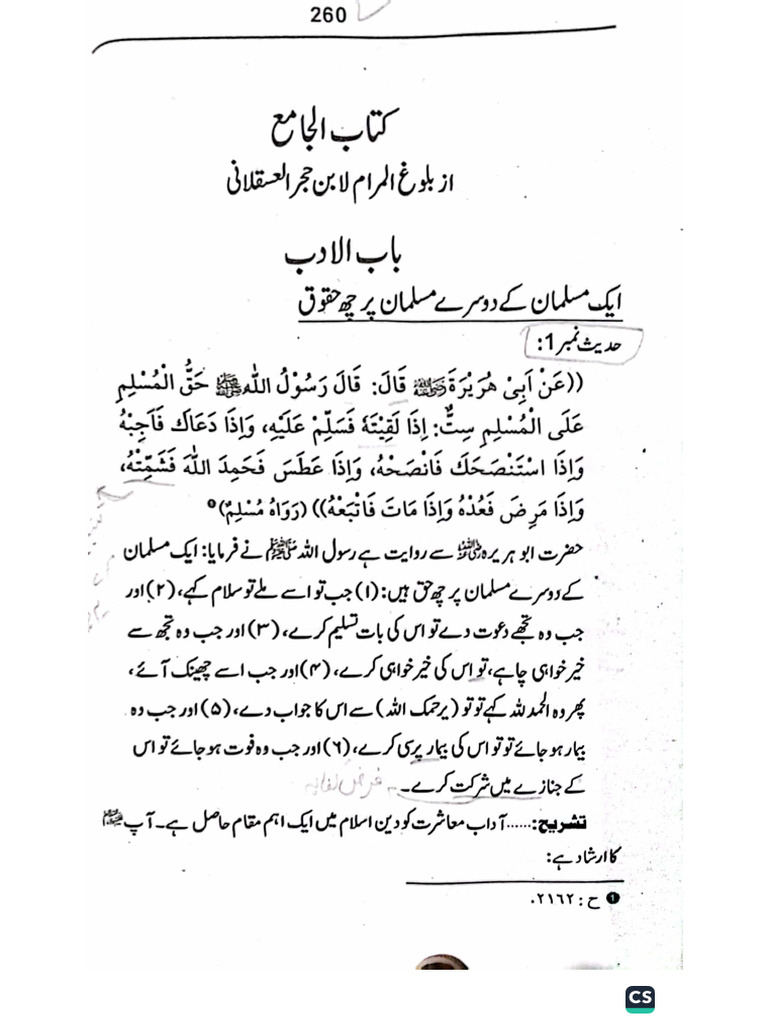 260
کتاب الجامع
از بلوغ المرام لابن حجر العسقلانی
باب الادب
ایک مسلمان کے دوسرے مسلمان پر چھ حقوق
حدیث نمبر 1:
((عَنْ اَبِیْ هُرَيْرَةَ رضی اللہ عنہ قَالَ: قَالَ رَسُوْلُ اللهِ ﷺ حَقُّ الْمُسْلِمِ
عَلَى الْمُسْلِمِ سِتٌّ: اِذَا لَقِيْتَهٗ فَسَلِّمْ عَلَيْهِ، وَاِذَا دَعَاكَ فَاَجِبْهُ
وَاِذَا اسْتَنْصَحَكَ فَانْصَحْهُ، وَاِذَا عَطَسَ فَحَمِدَ اللهَ فَشَمِّتْهُ،
وَاِذَا مَرِضَ فَعُدْهُ وَاِذَا مَاتَ فَاتْبَعْهُ)) (رَوَاهُ مُسْلِمٌ)❶
حضرت ابو ہریرہ رضی اللہ عنہ سے روایت ہے رسول اللہ ﷺ نے فرمایا: ایک مسلمان
کے دوسرے مسلمان پر چھ حق ہیں: (۱) جب تو اسے ملے تو سلام کہے، (۲) اور
جب وہ تجھے دعوت دے تو اس کی بات تسلیم کرے، (۳) اور جب وہ تجھ سے
خیر خواہی چاہے، تو اس کی خیر خواہی کرے، (۴) اور جب اسے چھینک آئے،
پھر وہ الحمد للہ کہے تو تو (یرحمک اللہ) سے اس کا جواب دے، (۵) اور جب وہ
بیمار ہو جائے تو تو اس کی بیمار پرسی کرے، (۶) اور جب وہ فوت ہو جائے تو اس
کے جنازے میں شرکت کرے۔
تشریح:...... آداب معاشرت کو دین اسلام میں ایک اہم مقام حاصل ہے۔ آپ ﷺ
کا ارشاد ہے:
❶ ح: ۲۱۶۲.
CS